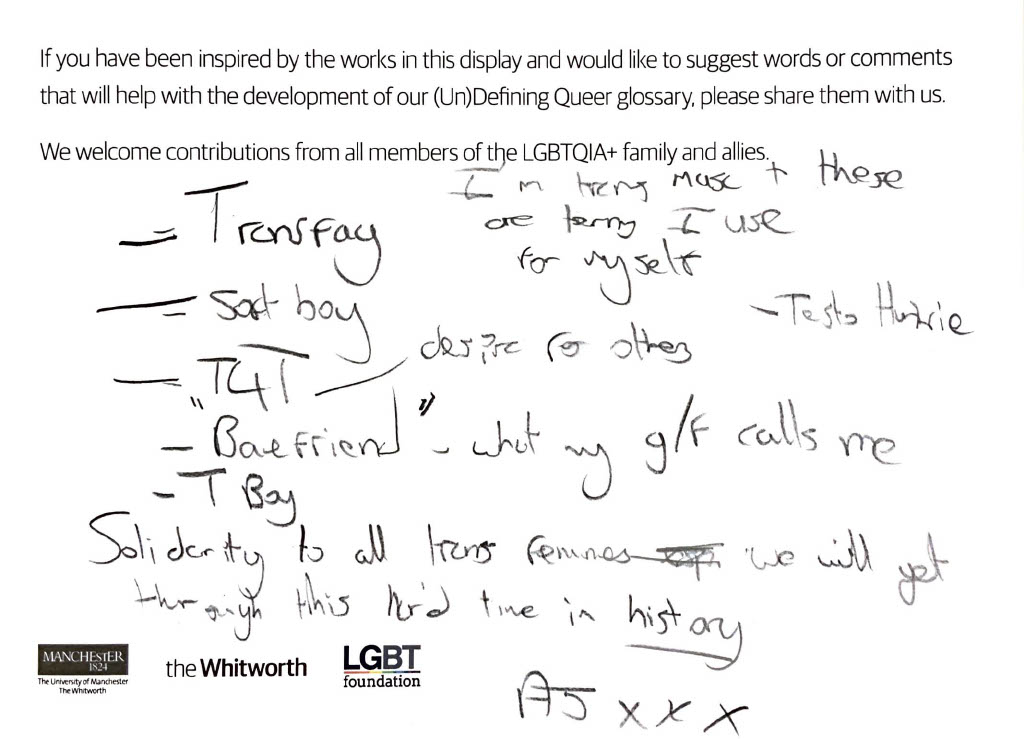 If you have been inspired by the works in this display and would like to suggest words or comments
that will help with the development of our (Un)Defining Queer glossary, please share them with us.
We welcome contributions from all members of the LGBTQIA+ family and allies.
I'm trans masc + these
are terms I use
for myself
- Transfag
- Soft boy
- Testo
- T4T - desire for others
- "Baefriend" - what my g/f calls me
- T Boy
Solidarity to all trans femmes we will get
through this hard time in history
AJ xxx
MANCHESTER
1824
The University of Manchester
The Whitworth
the Whitworth
LGBT
foundation